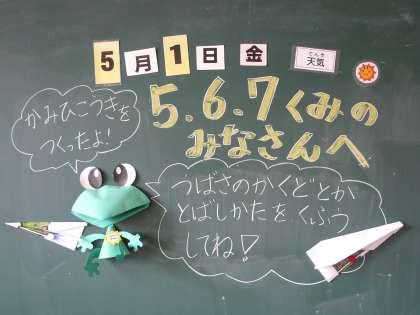 5月1日金
てんき
天気
5.6.7くみの
みなさんへ
かみひこうきを
つくったよ!
つばさのかくどとか
とばしかたをくふう
してね!